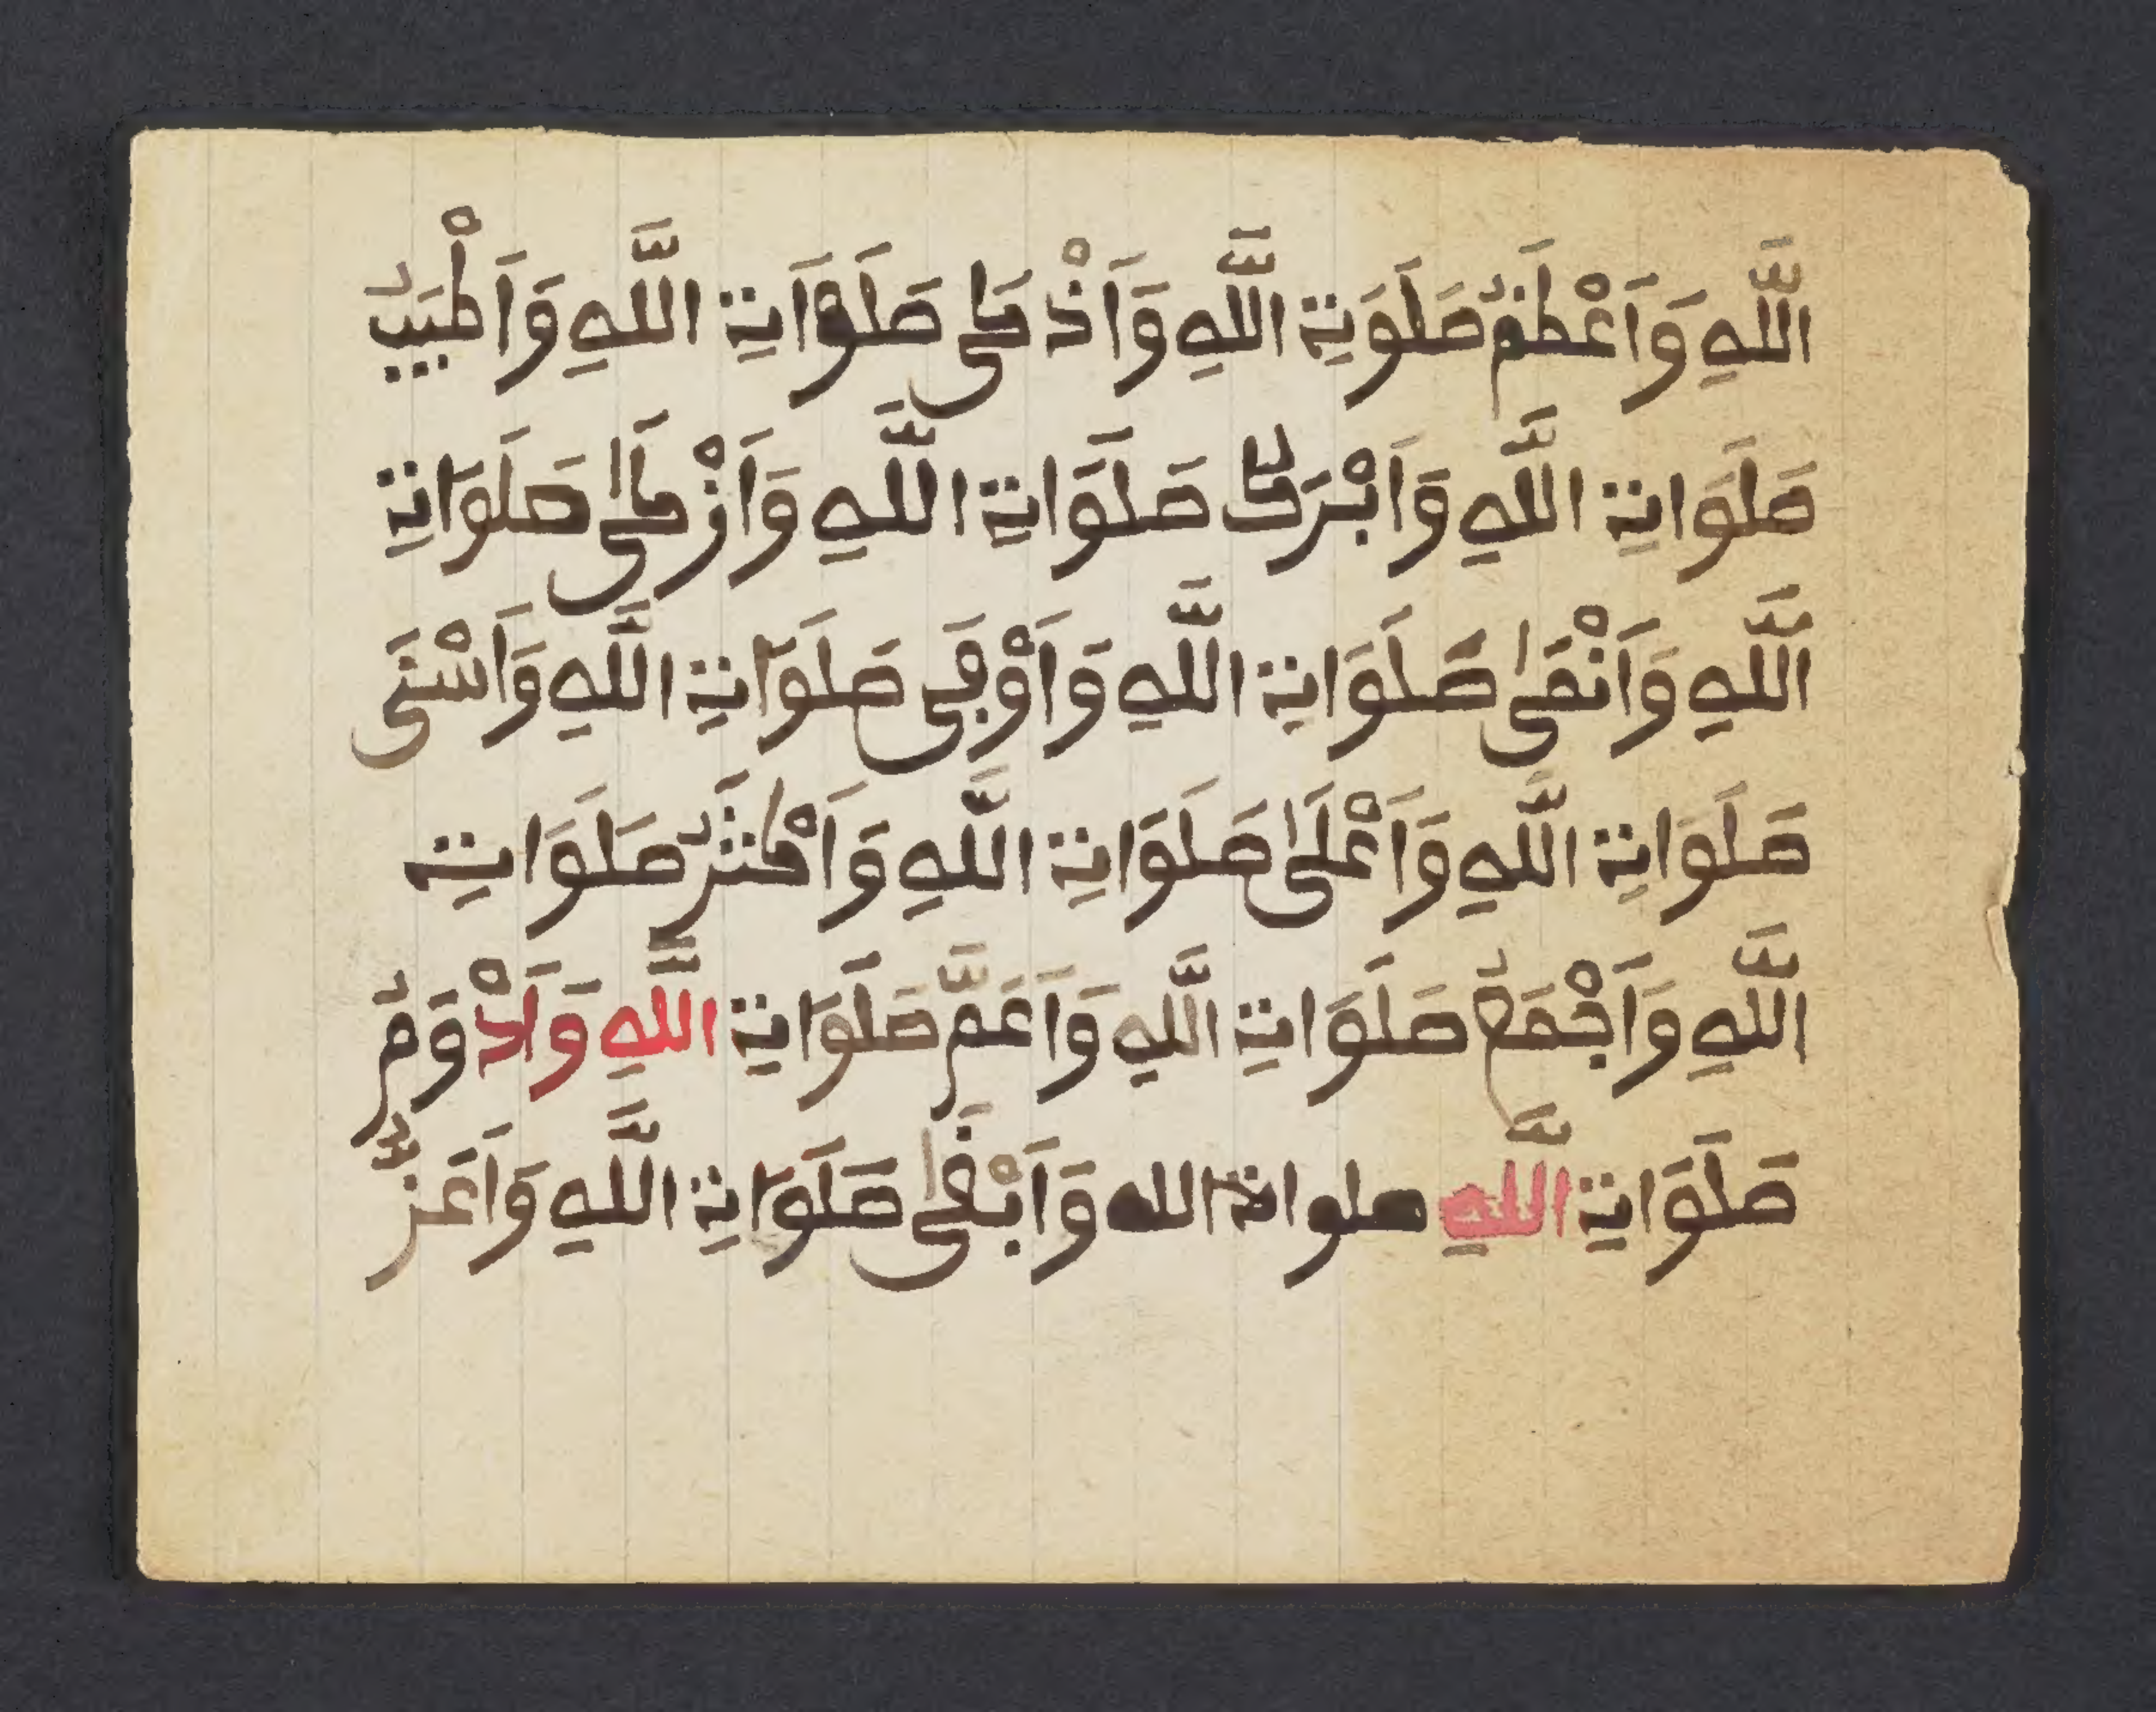 اللَّهِ وَاَعْظَمُ صَلَوَتِ اللَّهِ وَاَذْكَى صَلَوَاتِ اللَّهِ وَاَطْيَبُ
صَلَوَاتِ اللَّهِ وَاَبْرَكُ صَلَوَاتِ اللَّهِ وَاَزْكَى صَلَوَاتِ
اللَّهِ وَاَنْقَى صَلَوَاتِ اللَّهِ وَاَوْفَى صَلَوَاتِ اللَّهِ وَاَسْنَى
صَلَوَاتِ اللَّهِ وَاَعْلَى صَلَوَاتِ اللَّهِ وَاَكْثَرُ صَلَوَاتِ
اللَّهِ وَاَجْمَعُ صَلَوَاتِ اللَّهِ وَاَعَمُّ صَلَوَاتِ اللَّهِ وَاَدْوَمُ
صَلَوَاتِ اللَّهِ صلوات الله وَاَبْقَى صَلَوَاتِ اللَّهِ وَاَعَزُّ